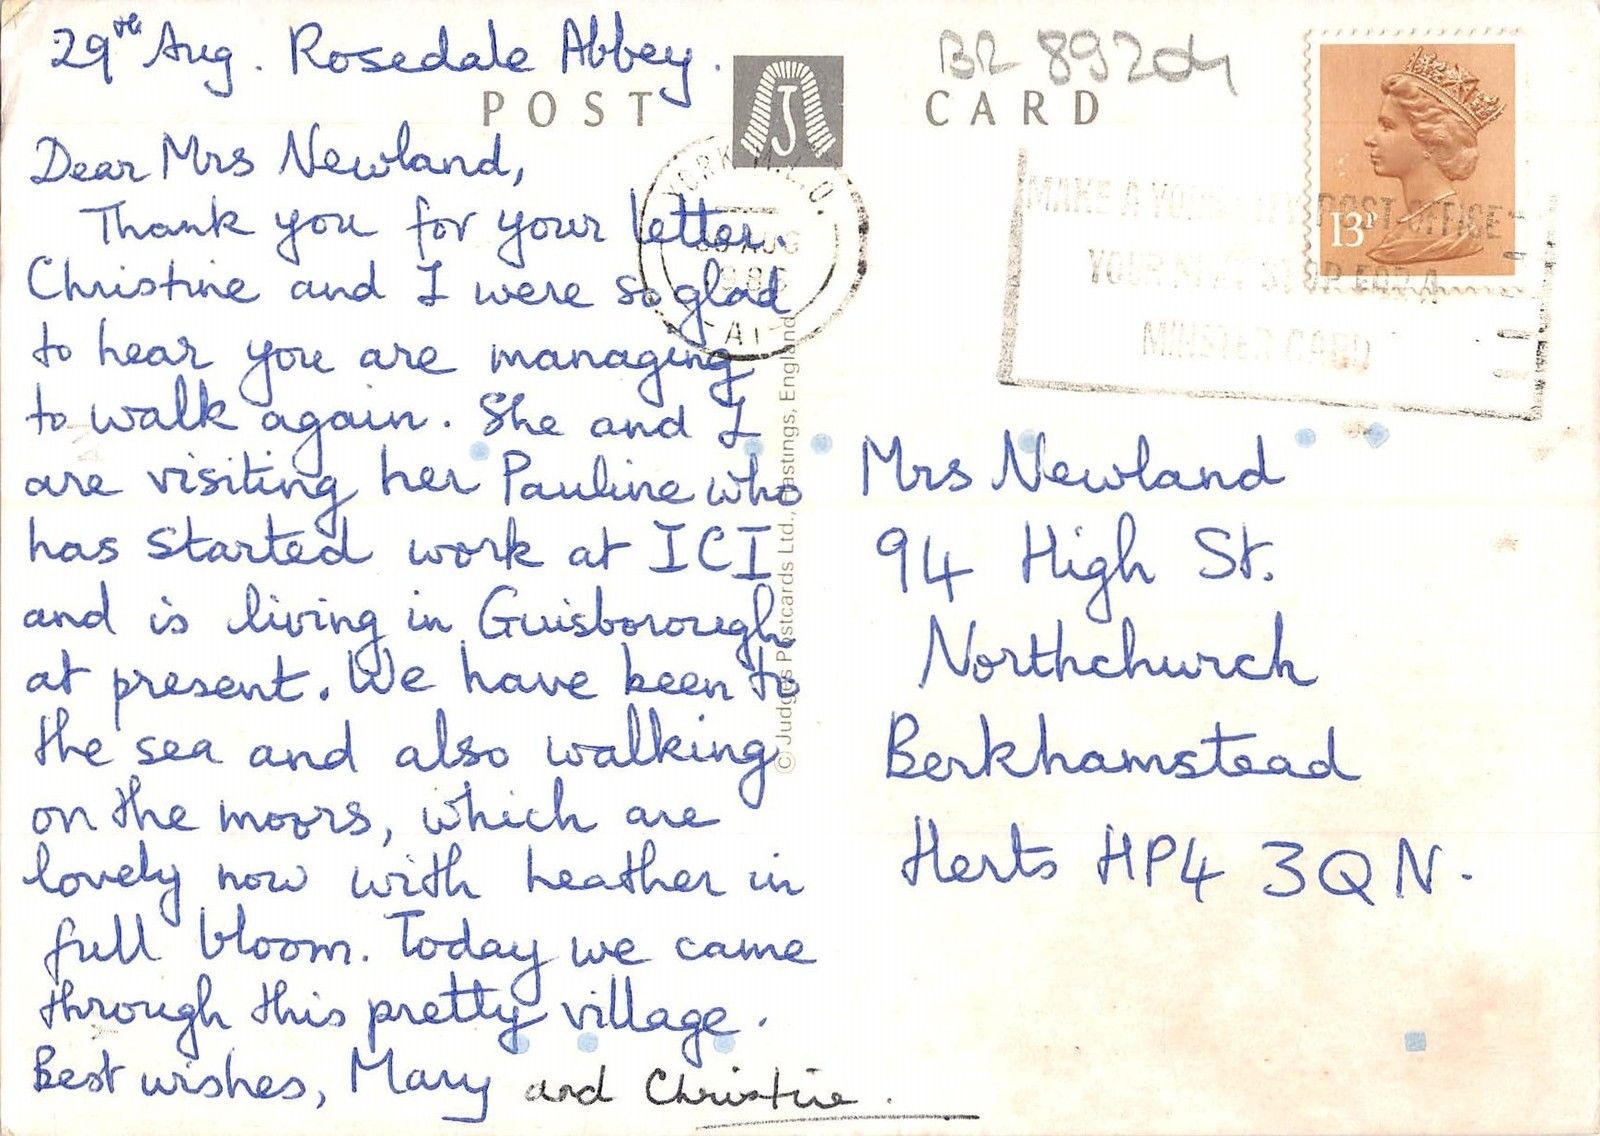 29th Aug. Rosedale Abbey.
POST CARD
J
BR 892
Dear Mrs Newland,
Thank you for your letter.
Christine and I were so glad
to hear you are managing
to walk again. She and I
are visiting her Pauline who
has started work at ICI
and is living in Guisborough
at present. We have been to
the sea and also walking
on the moors, which are
lovely now with heather in
full bloom. Today we came
through this pretty village.
Best wishes, Mary and Christine.
YORK
AUG
A
© Judges Postcards Ltd., Hastings, England
13P
MAKE A YOUR POST OFFICE
YOUR NEXT STOP FOR A
MINSTER CARD
Mrs Newland
94 High St.
Northchurch
Berkhamstead
Herts HP4 3QN.